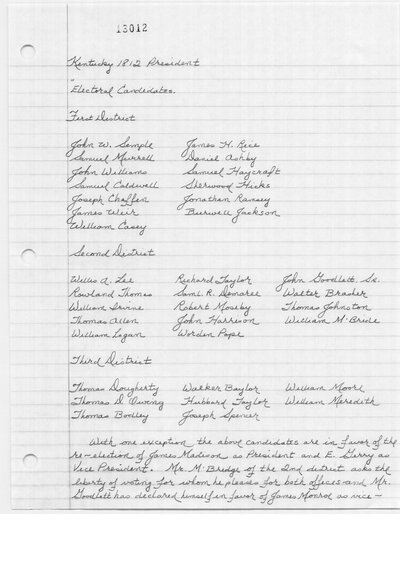 13012
Kentucky 1812 President
"
Electoral Candidates.
First District
John W. Semple James H. Rice
Samuel Murrell Daniel Ashby
John Williams Samuel Haycraft
Samuel Caldwell Sherwood Hicks
Joseph Chaffen Jonathan Ramsey
James Weir Burwell Jackson
William Casey
Second District
Willis A. Lee Richard Taylor John Goodlett, Sr.
Rowland Thomas Saml. R. Demaree Walter Brasher
William Irvine Robert Moseby Thomas Johnston
Thomas Allen John Harrison William McBride
William Logan Worden Pope
Third District
Thomas Dougherty Walker Baylor William Moore
Thomas D. Owing Hubbard Taylor William Meredith
Thomas Bodley Joseph Spencer
With one exception the above candidates are in favor of the
re-election of James Madison as President and E. Gerry as
Vice President. Mr. McBridge of the 2nd district asks the
liberty of voting for whom he pleases for both offices and Mr.
Goodlett has declared himself in favor of James Monroe as vice-